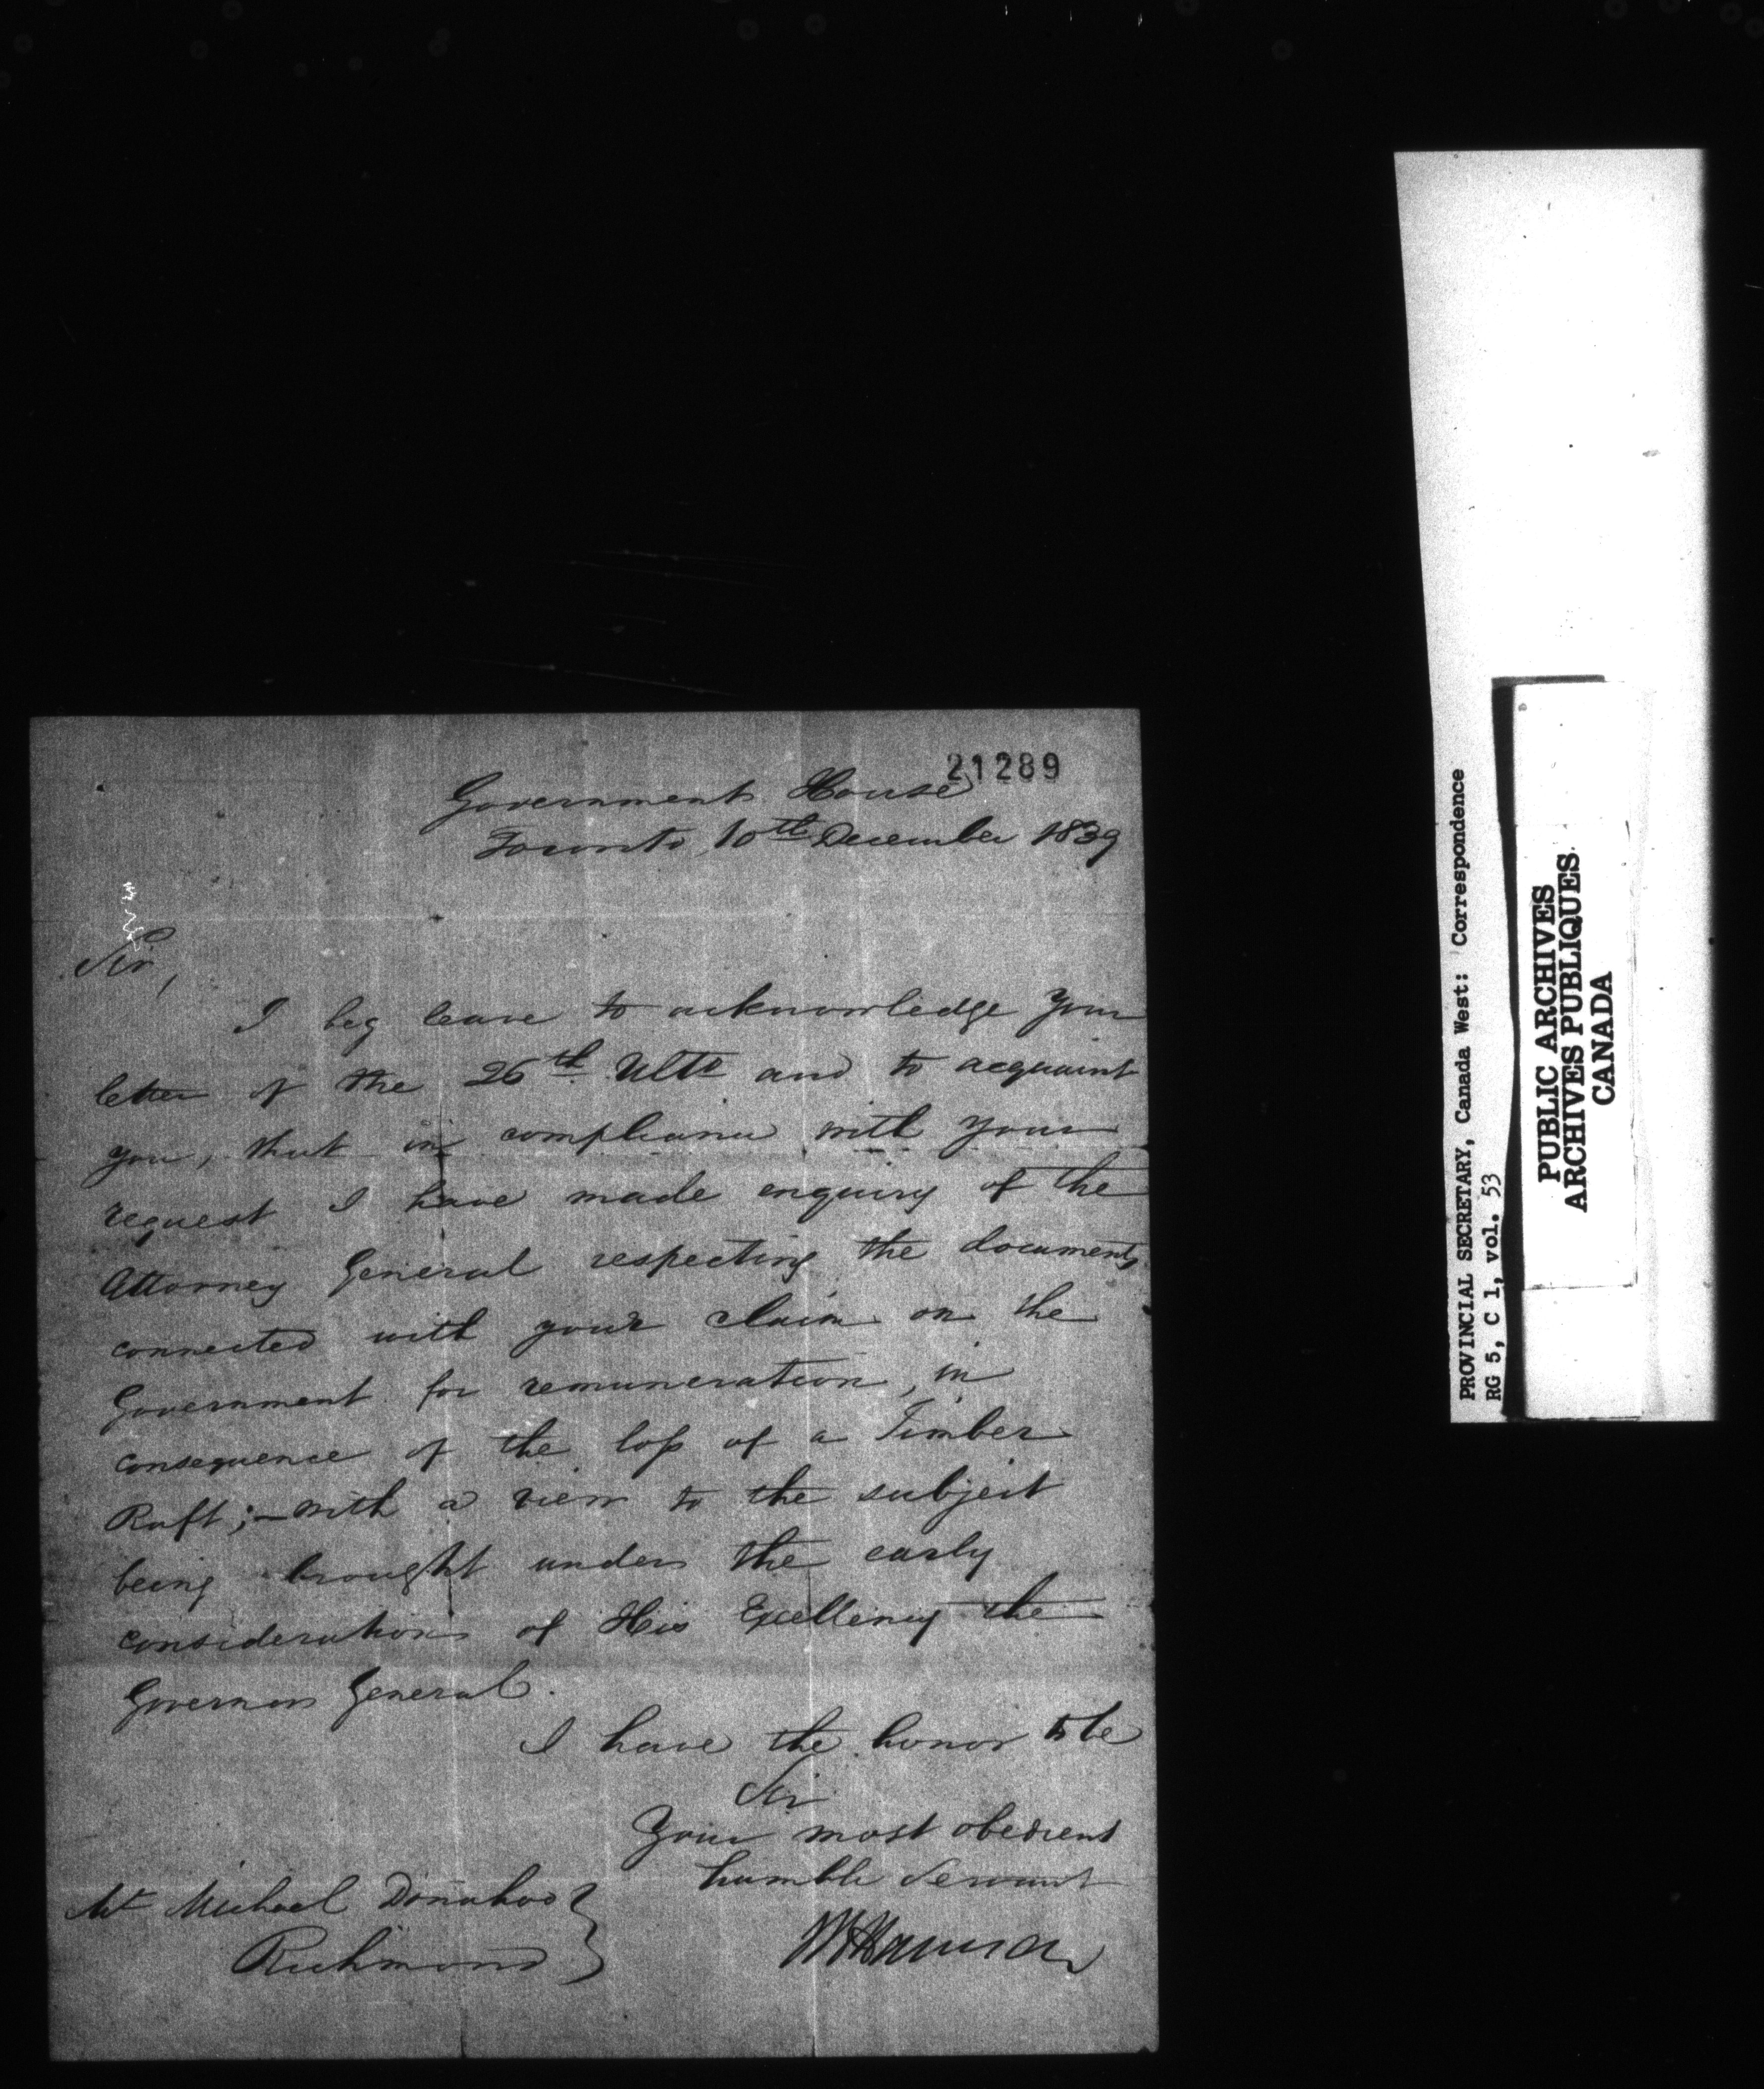 21289
Government House
Toronto, 10th December 1839
Sir,
I beg leave to acknowledge your
letter of the 26th Ulto and to acquaint
you, that in compliance with your
request I have made enquiry of the
Attorney General respecting the documents
connected with your claim on the
Government for remuneration, in
consequence of the loss of a Timber
Raft;—with a view to the subject
being brought under the early
consideration of His Excellency the
Governor General.
I have the honor to be
Sir
Your most obedient
humble Servant
Mr Michael Donahoo
Richmond
PROVINCIAL SECRETARY, Canada West: Correspondence
RG 5, C 1, vol. 53
PUBLIC ARCHIVES
ARCHIVES PUBLIQUES
CANADA